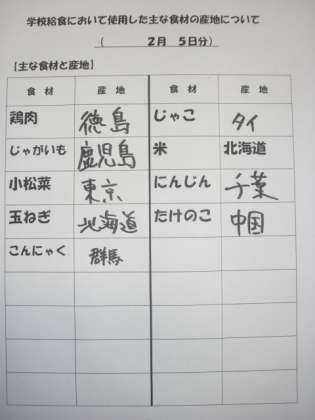 学校給食において使用した主な食材の産地について
（　2月　5日分）
【主な食材と産地】
食　材　産　地　食　材　産　地
鶏肉　徳島　じゃこ　タイ
じゃがいも　鹿児島　米　北海道
小松菜　東京　にんじん　千葉
玉ねぎ　北海道　たけのこ　中国
こんにゃく　群馬